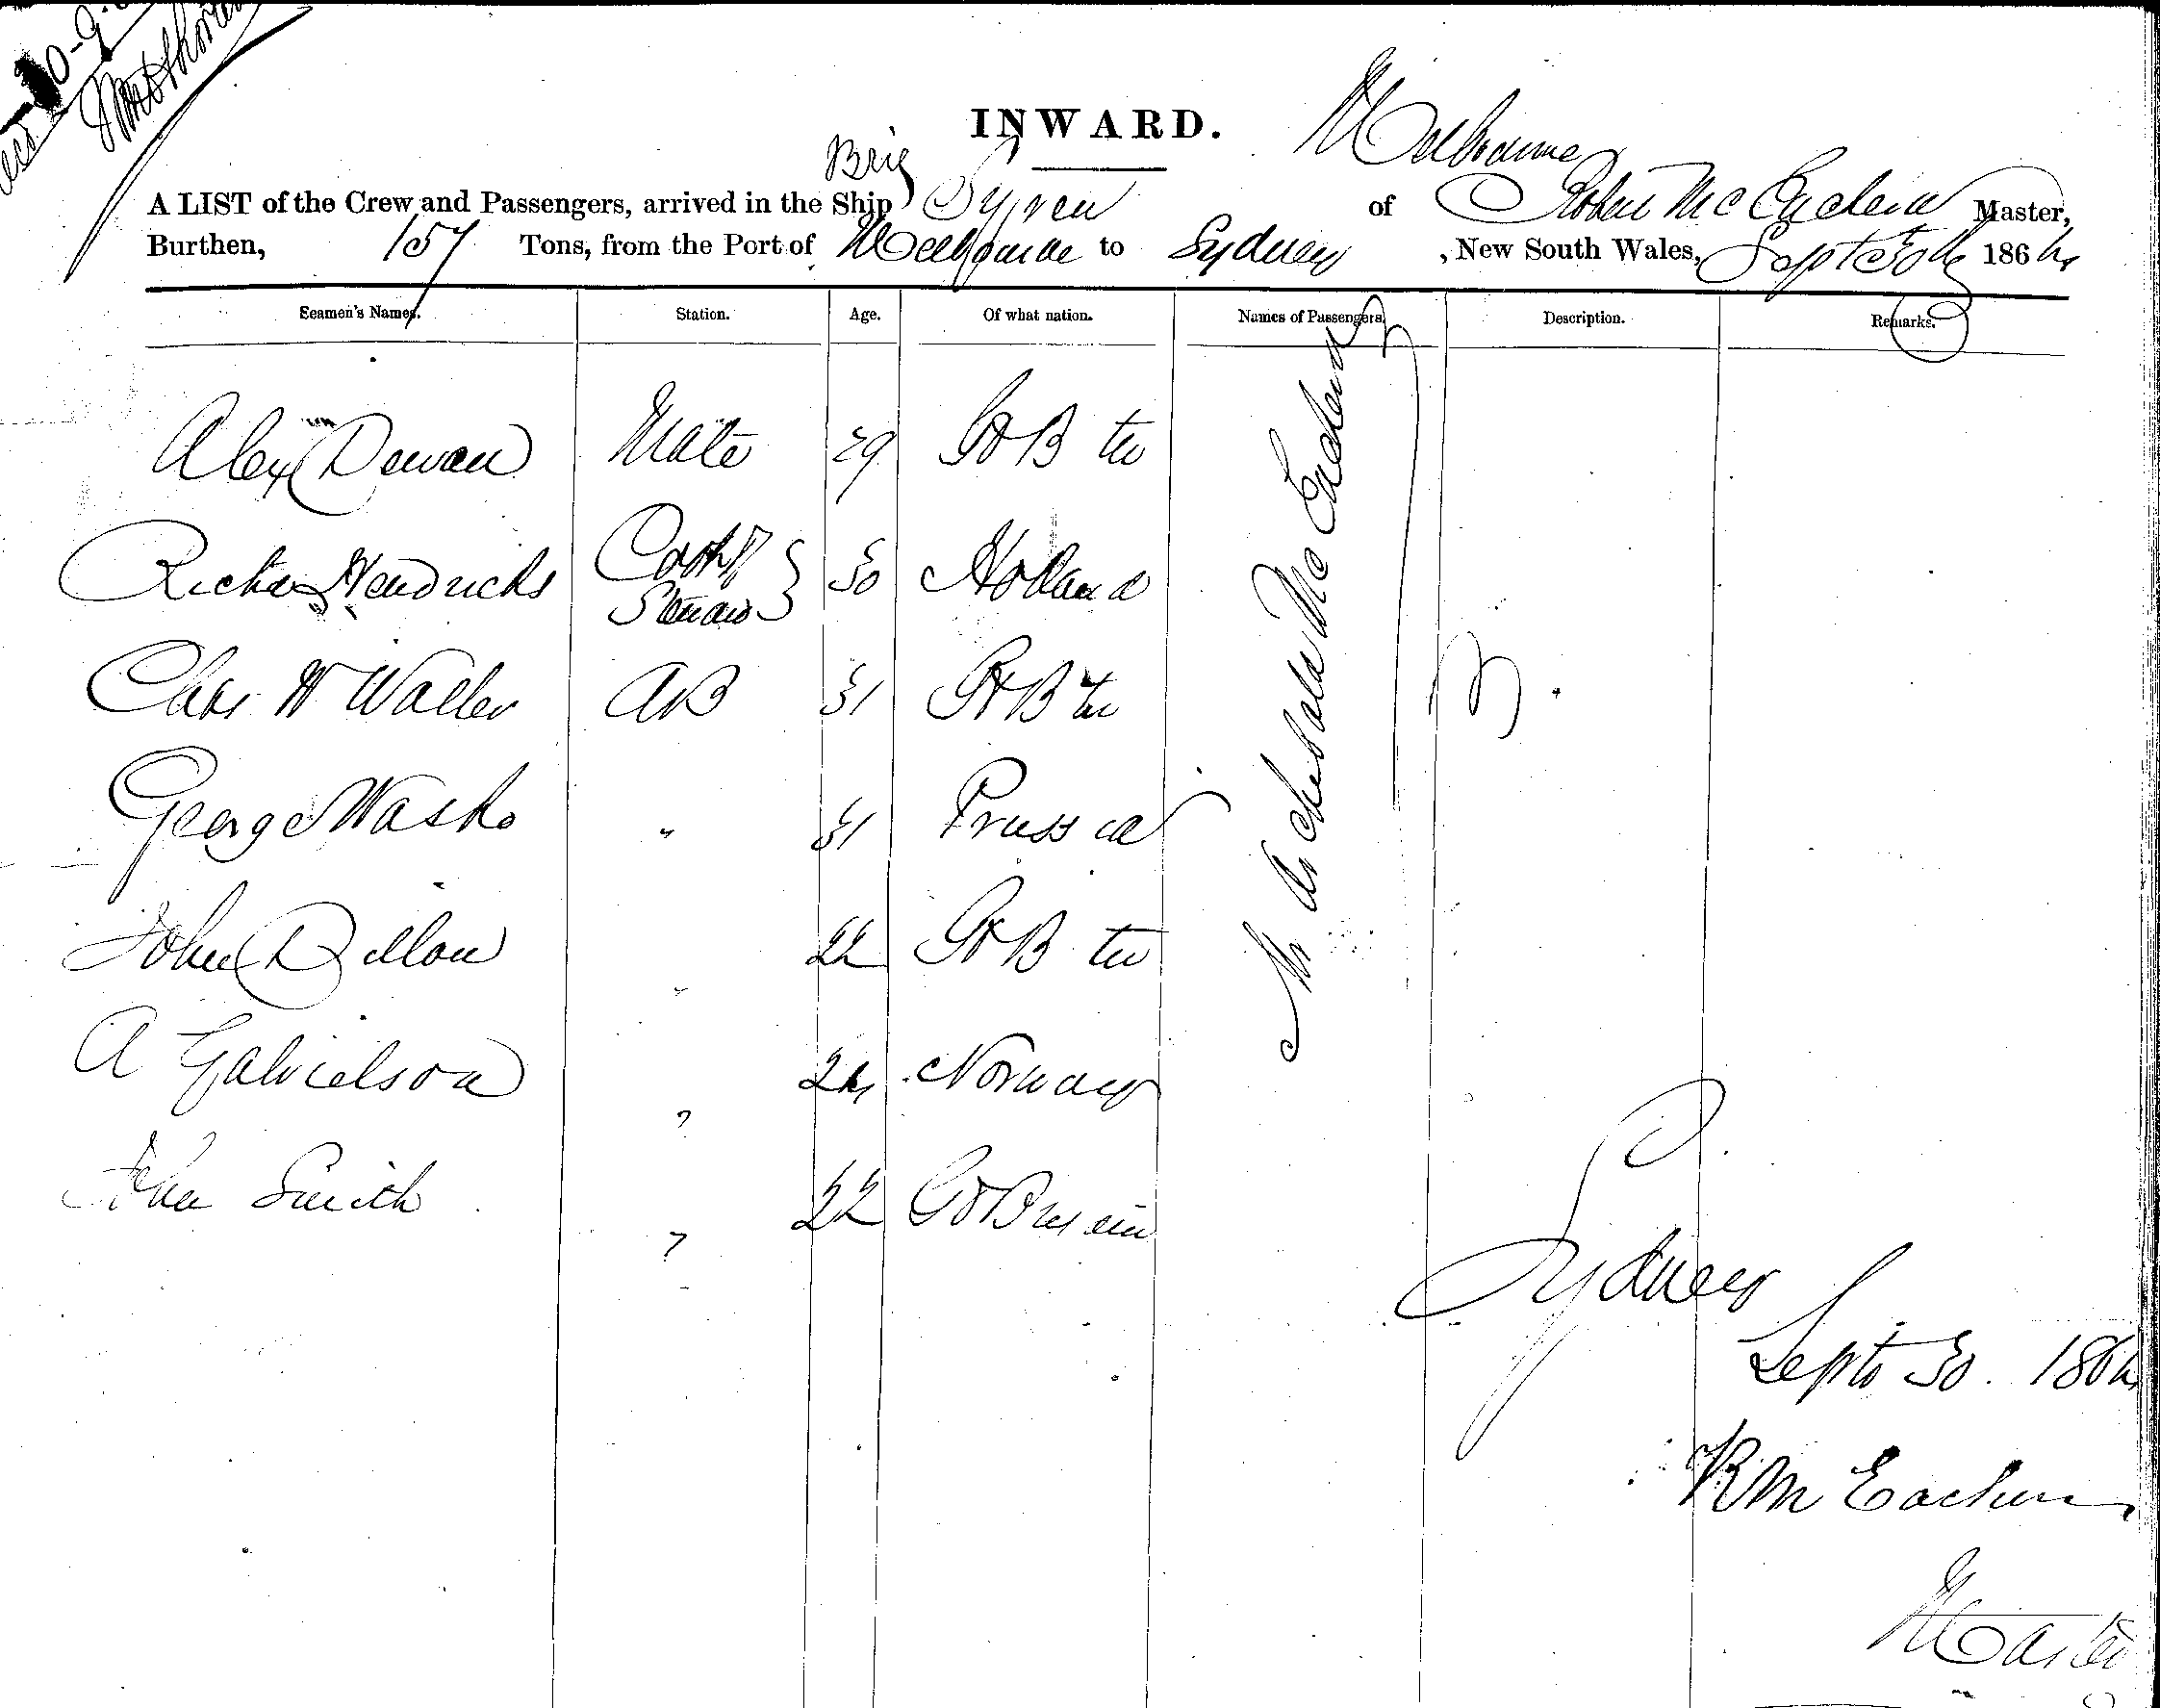 INWARD.
Melbourne
Brig
A LIST of the Crew and Passengers, arrived in the Ship Syren of Robert McEachern Master,
Burthen, 157 Tons, from the Port of Melbourne to Sydney, New South Wales, Sept 30th 1864
Seamen's Names. Station. Age. Of what nation. Names of Passengers. Description. Remarks.
Alex Dewan Mate 29 Gt Btn
Richard Hendricks Cook & Steward } 30 Holland
Chas W Waller AB 31 Gt Btn
George Wasko " 31 Prussia
John Dillon " 22 Gt Btn
A Gabrielson " 24 Norway
John Smith " 22 Gt Britain
Mr Archibald McEachern
Sydney
Septr 30. 1864
R Mc Eachern
Master